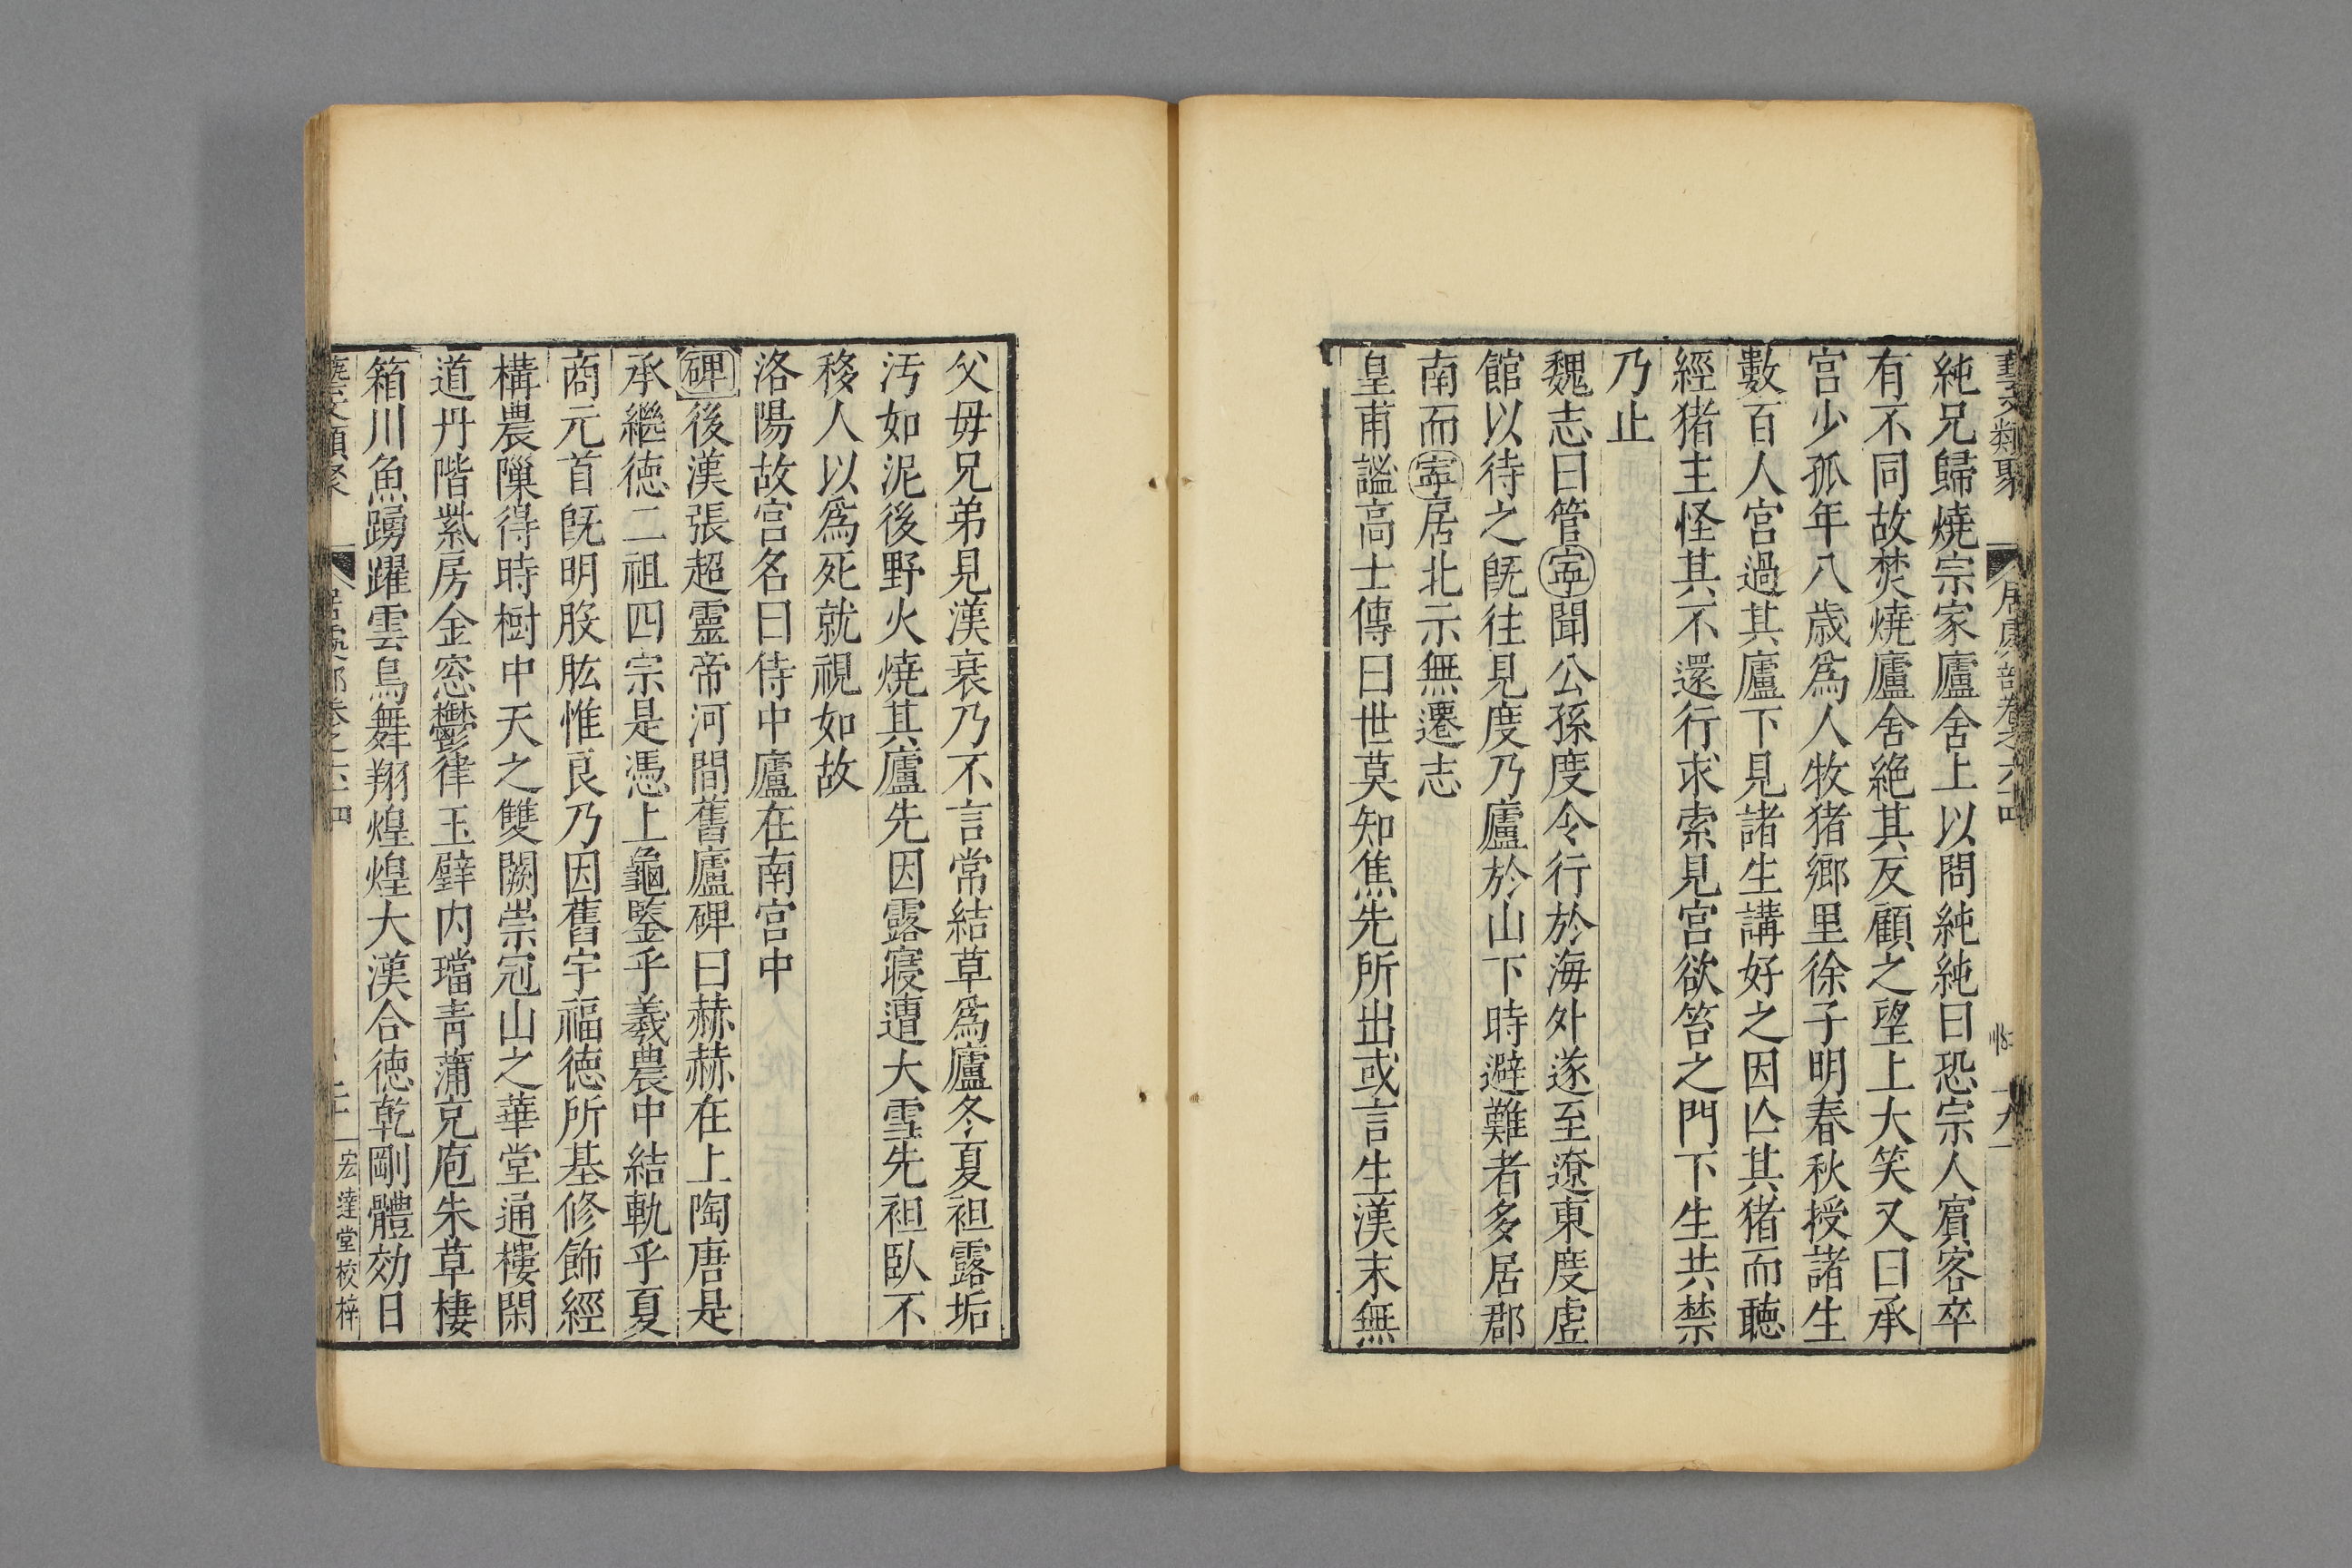 藝文類聚 居處部卷之六十四 十九
純兄歸燒宗家廬舍上以問純純曰恐宗人賓客卒
有不同故焚燒廬舍絶其反顧之望上大笑又曰承
宮少孤年八歳爲人牧猪鄉里徐子明春秋授諸生
數百人宮過其廬下見諸生講好之因亾其猪而聴
經猪主怪其不還行求索見宮欲笞之門下生共禁
乃止
魏志曰管寧聞公孫度令行於海外遂至遼東度虚
館以待之旣往見度乃廬於山下時避難者多居郡
南而寧居北示無遷志
皇甫謐高士傳曰世莫知焦先所出或言生漢末無
父毋兄弟見漢衰乃不言常結草爲廬冬夏袒露垢
汚如泥後野火燒其廬先因露寢遭大雪先袒臥不
移人以爲死就視如故
洛陽故宮名曰侍中廬在南宮中
碑後漢張超靈帝河間舊廬碑曰赫赫在上陶唐是
承繼徳二祖四宗是憑上龜鑒乎羲農中結軌乎夏
商元首旣明股肱惟良乃因舊宇福徳所基修飾經
構農隟得時樹中天之雙闕崇冠山之華堂通樓閑
道丹階紫房金窓鬱律玉璧内璫靑蒲充庖朱草棲
箱川魚踴躍雲鳥舞翔煌煌大漢合徳乾剛體効日
藝文類聚 居處部卷之六十四 二十 宏達堂校梓